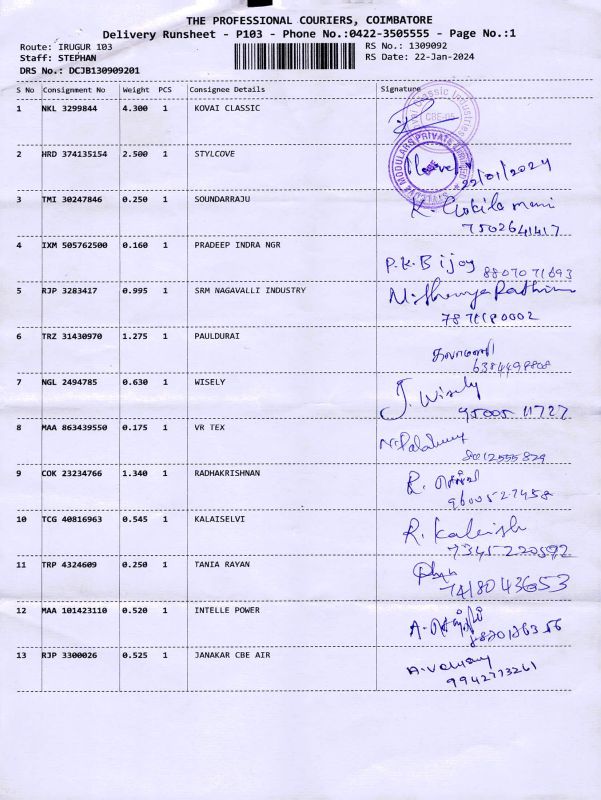 THE PROFESSIONAL COURIERS, COIMBATORE
Delivery Runsheet - P103 - Phone No.:0422-3505555 - Page No.:1
Route: IRUGUR 103
RS No.: 1309092
Staff: STEPHAN
RS Date: 22-Jan-2024
DRS No.: DCJB130909201
S No Consignment No Weight PCS Consignee Details Signature
1 NKL 3299844 4.300 1 KOVAI CLASSIC
CBE-05
2 HRD 374135154 2.500 1 STYLCOVE
MODULARS PRIVATE
22/01/2024
3 TMI 30247846 0.250 1 SOUNDARRAJU K. Gokila mani
7502641417
4 IXM 505762500 0.160 1 PRADEEP INDRA NGR
P.K.Bijoy 8807071693
5 RJP 3283417 0.995 1 SRM NAGAVALLI INDUSTRY
6 TRZ 31430970 1.275 1 PAULDURAI
7 NGL 2494785 0.630 1 WISELY J. Wisely
95005 11727
8 MAA 863439550 0.175 1 VR TEX
8012555829
9 COK 23234766 1.340 1 RADHAKRISHNAN R.
9600527458
10 TCG 40816963 0.545 1 KALAISELVI R.
7345220592
11 TRP 4324609 0.250 1 TANIA RAYAN
7418043653
12 MAA 101423110 0.520 1 INTELLE POWER A.
13 RJP 3300026 0.525 1 JANAKAR CBE AIR
9942773261